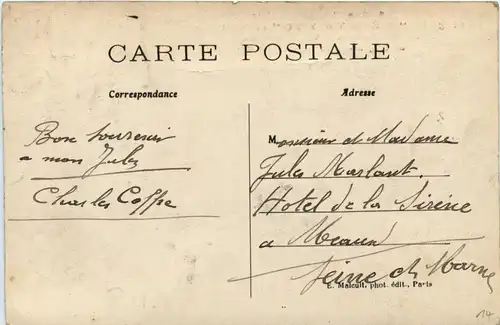 CARTE POSTALE
Correspondance
Adresse
Bon souvenir
a mon Jules
Charles Coppe
Monsieur et Madame
Jules Marlant.
Hotel de la Sirène
a Meaux
Seine et Marne
E. Malcuit, phot. édit., Paris
14